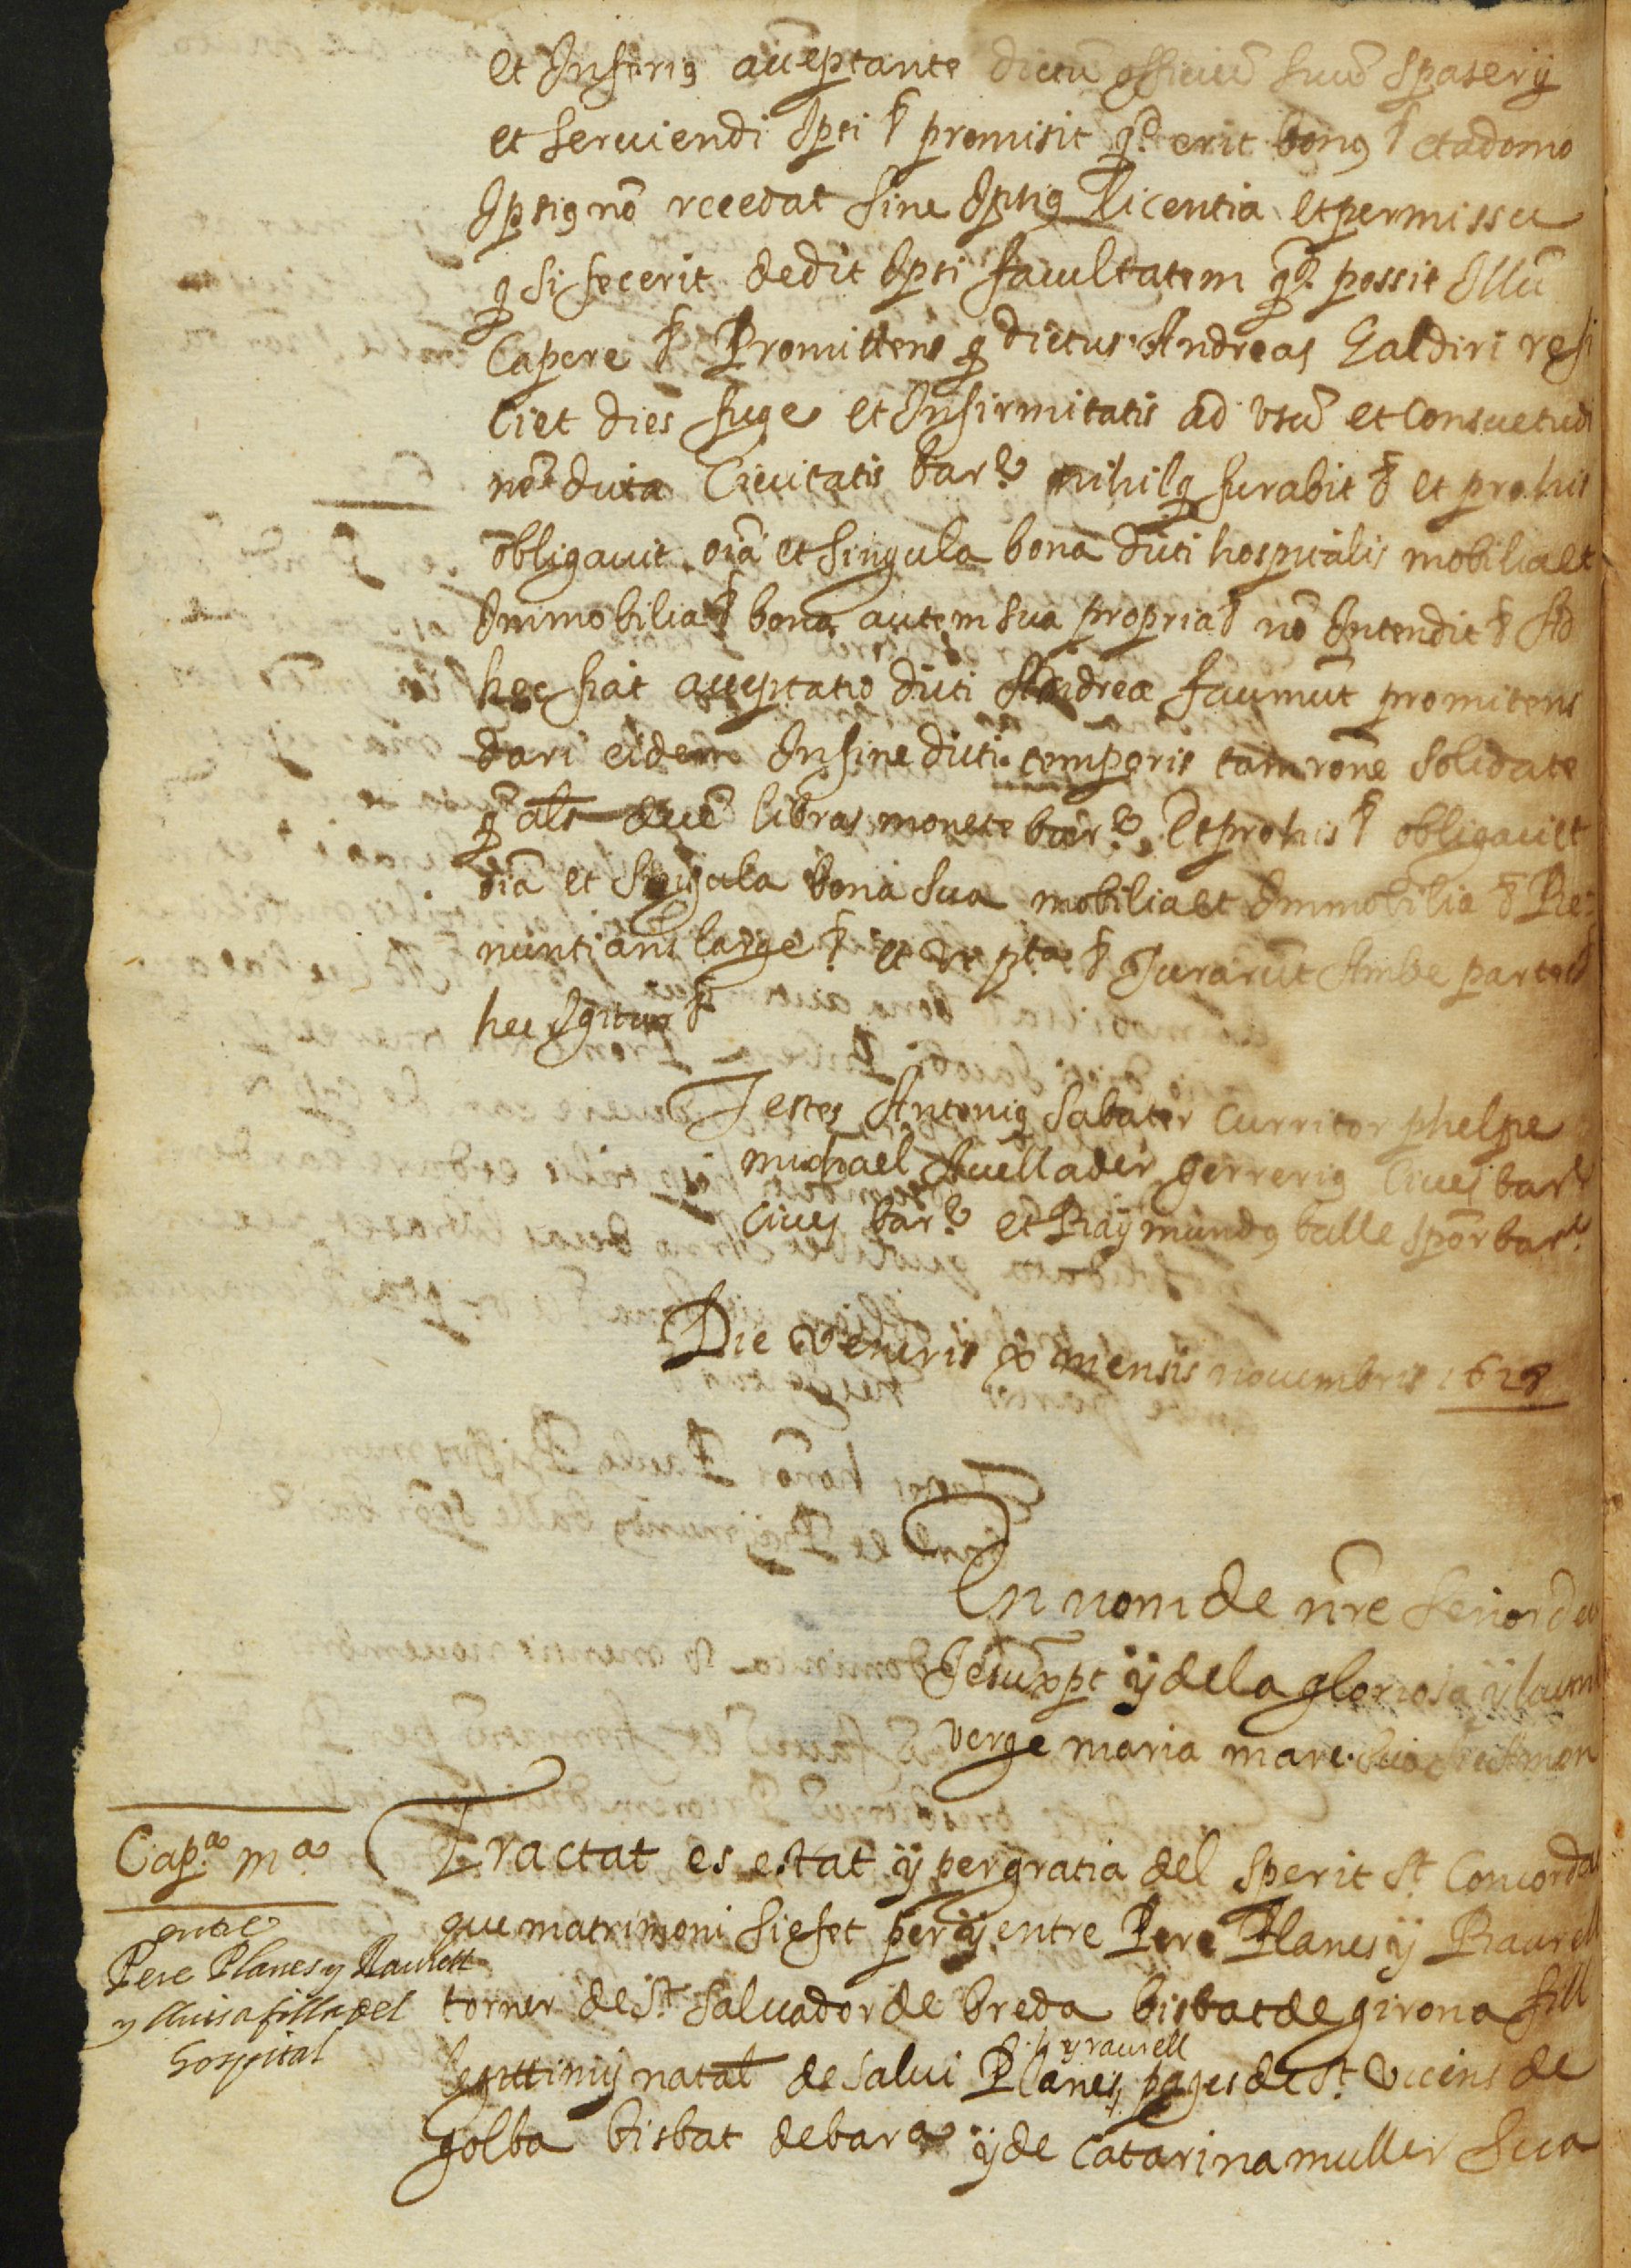 et Inferiꝰ acceptante dictũ officiũ suũ Spaserij
et seruiendi Ipsi ⁊ promisit q̃ erit bonꝰ ⁊ et a domo
Ipsiꝰ nõ recedat sine Ipsiꝰ licentia et permissu
q̃ si fecerit dedit Ipsi facultatem q̃ possit Illũ
Capere ⁊ Promittens q̃ dictus Andreas Galdiri refi
ciet dies fuge et Infirmitatis ad vsũ et Consuetudi
nẽ dicta Ciuitatis barᵉ nihilq̃ furabit ⁊ et pro his
obligauit oĩa et singula bona dicti hospitalis mobilia et
Immobilia ⁊ bona autem sua propria ⁊ nõ Intendit ⁊ Ad
hec fiat acceptatio dicti Andreæ promitens
dari eidem In fine dicti temporis tam rõne solidate
q̃ als decẽ libras monete barᵉ. Et pro his ⁊ obligauit
oĩa et singula bona sua mobilia et Immobilia ⁊ Re-
nuntians large ⁊ et de pᵗᵃ ⁊ Jurarũt Ambe partes ⁊
hec Igitur ⁊
Testes Antoniꝰ Sabater Curritor phelpe
michael Auellader gerreriꝰ Ciues barᵉ
Ciues barᵉ et Raymundꝰ balle Spõr barᵉ
Die Veneris x mensis nouembris 1628
En nom de nr̃e senior deu
Jesu xpt ÿ de la gloriosa ÿ humil
verge maria mare sua
Capᵃ mᵃ
entre
Pere Planes y Raurell
y lluisa filla del
hospital
Tractat es estat ÿ per gratia del sperit sᵗ Concordat
que matrimoni sie fet per ÿ entre Pere Planes ÿ Raurell
torner de Sᵗ Saluador de breda bisbat de girona fill
legittim ÿ natal de Salui Planes y raurell pages de Sᵗ Vicens de
golba bisbat de barᵃ ÿ de Catarina muller sua